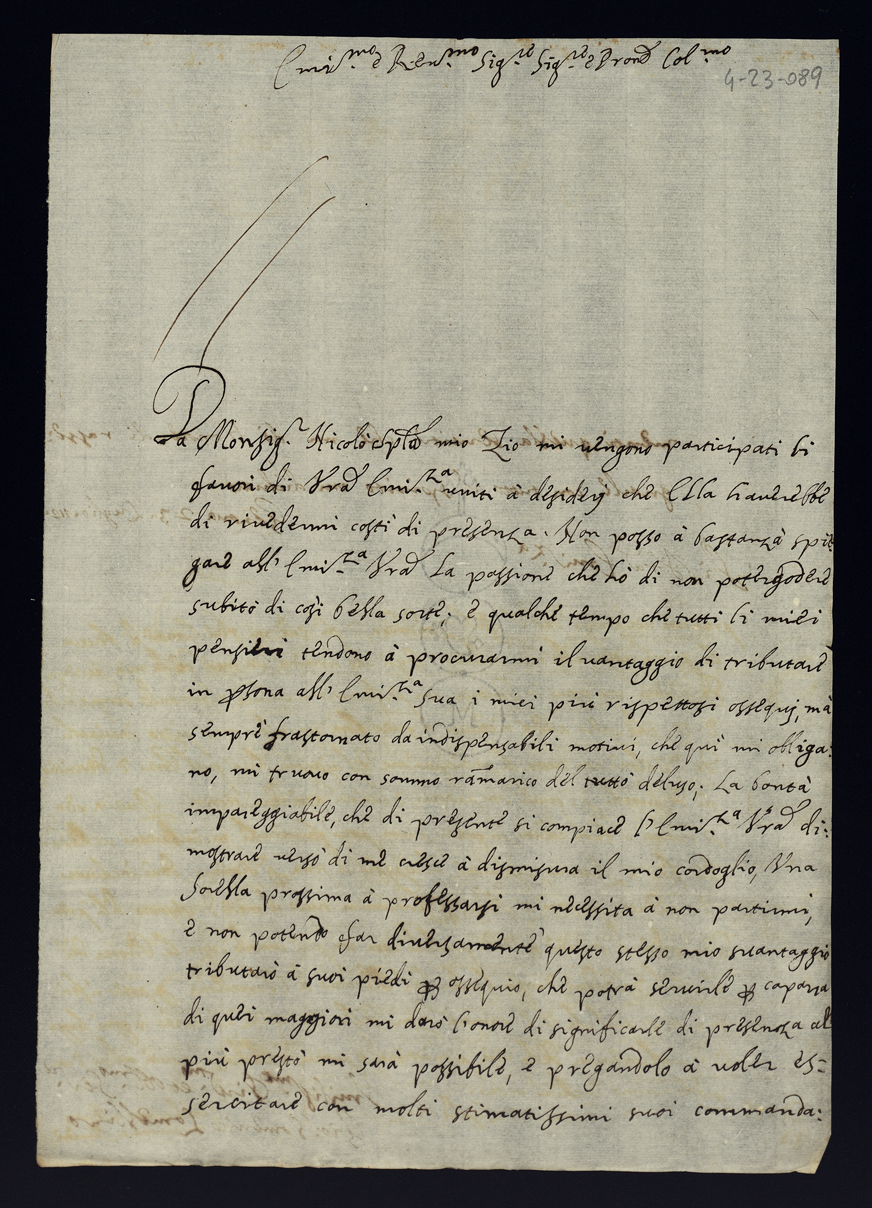 Emin.mo e Reu.mo Sig.re Sig.re e Pron Col.mo
4-23-089
Da Monsig.r Nicolò mio Zio mi uengono participati li
fauori di Vra Emin.za uniti à desiderij che Ella hauerebbe
di riuedermi costì di presenza. Non posso à bastanza spie-
gare all' Emin.za Vra la passione che hò di non poter godere
subito di così bella sorte; e qualche tempo che tutti li miei
pensieri tendono à procurarmi il uantaggio di tributare
in psona all' Emin.za Sua i miei più rispettosi ossequij, mà
sempre frastornato da indispensabili motiui, che quì mi obliga:
no, mi truouo con sommo rãmarico del tutto deluso; La bontà
impareggiabile, che di presente si compiace l' Emin.za Vra di:
mostrare uerso di me cresce à dismisura il mio cordoglio, Una
Sorella prossima à professarsi mi necessita à non partirmi,
e non potendo far diuersamente questo stesso mio suantaggio
tributarò à suoi piedi p ossequio, che potrà seruirle p caparra
di quei maggiori mi darò l'onore di significarle di presenza al
più presto mi sarà possibile, e pregandolo à uoler es=
sercitare con molti stimatissimi suoi commanda: